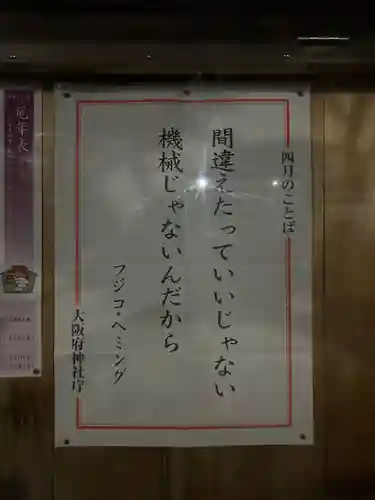 四月のことば
間違えたっていいじゃない
機械じゃないんだから
フジコ・ヘミング
大阪府神社庁
厄年表